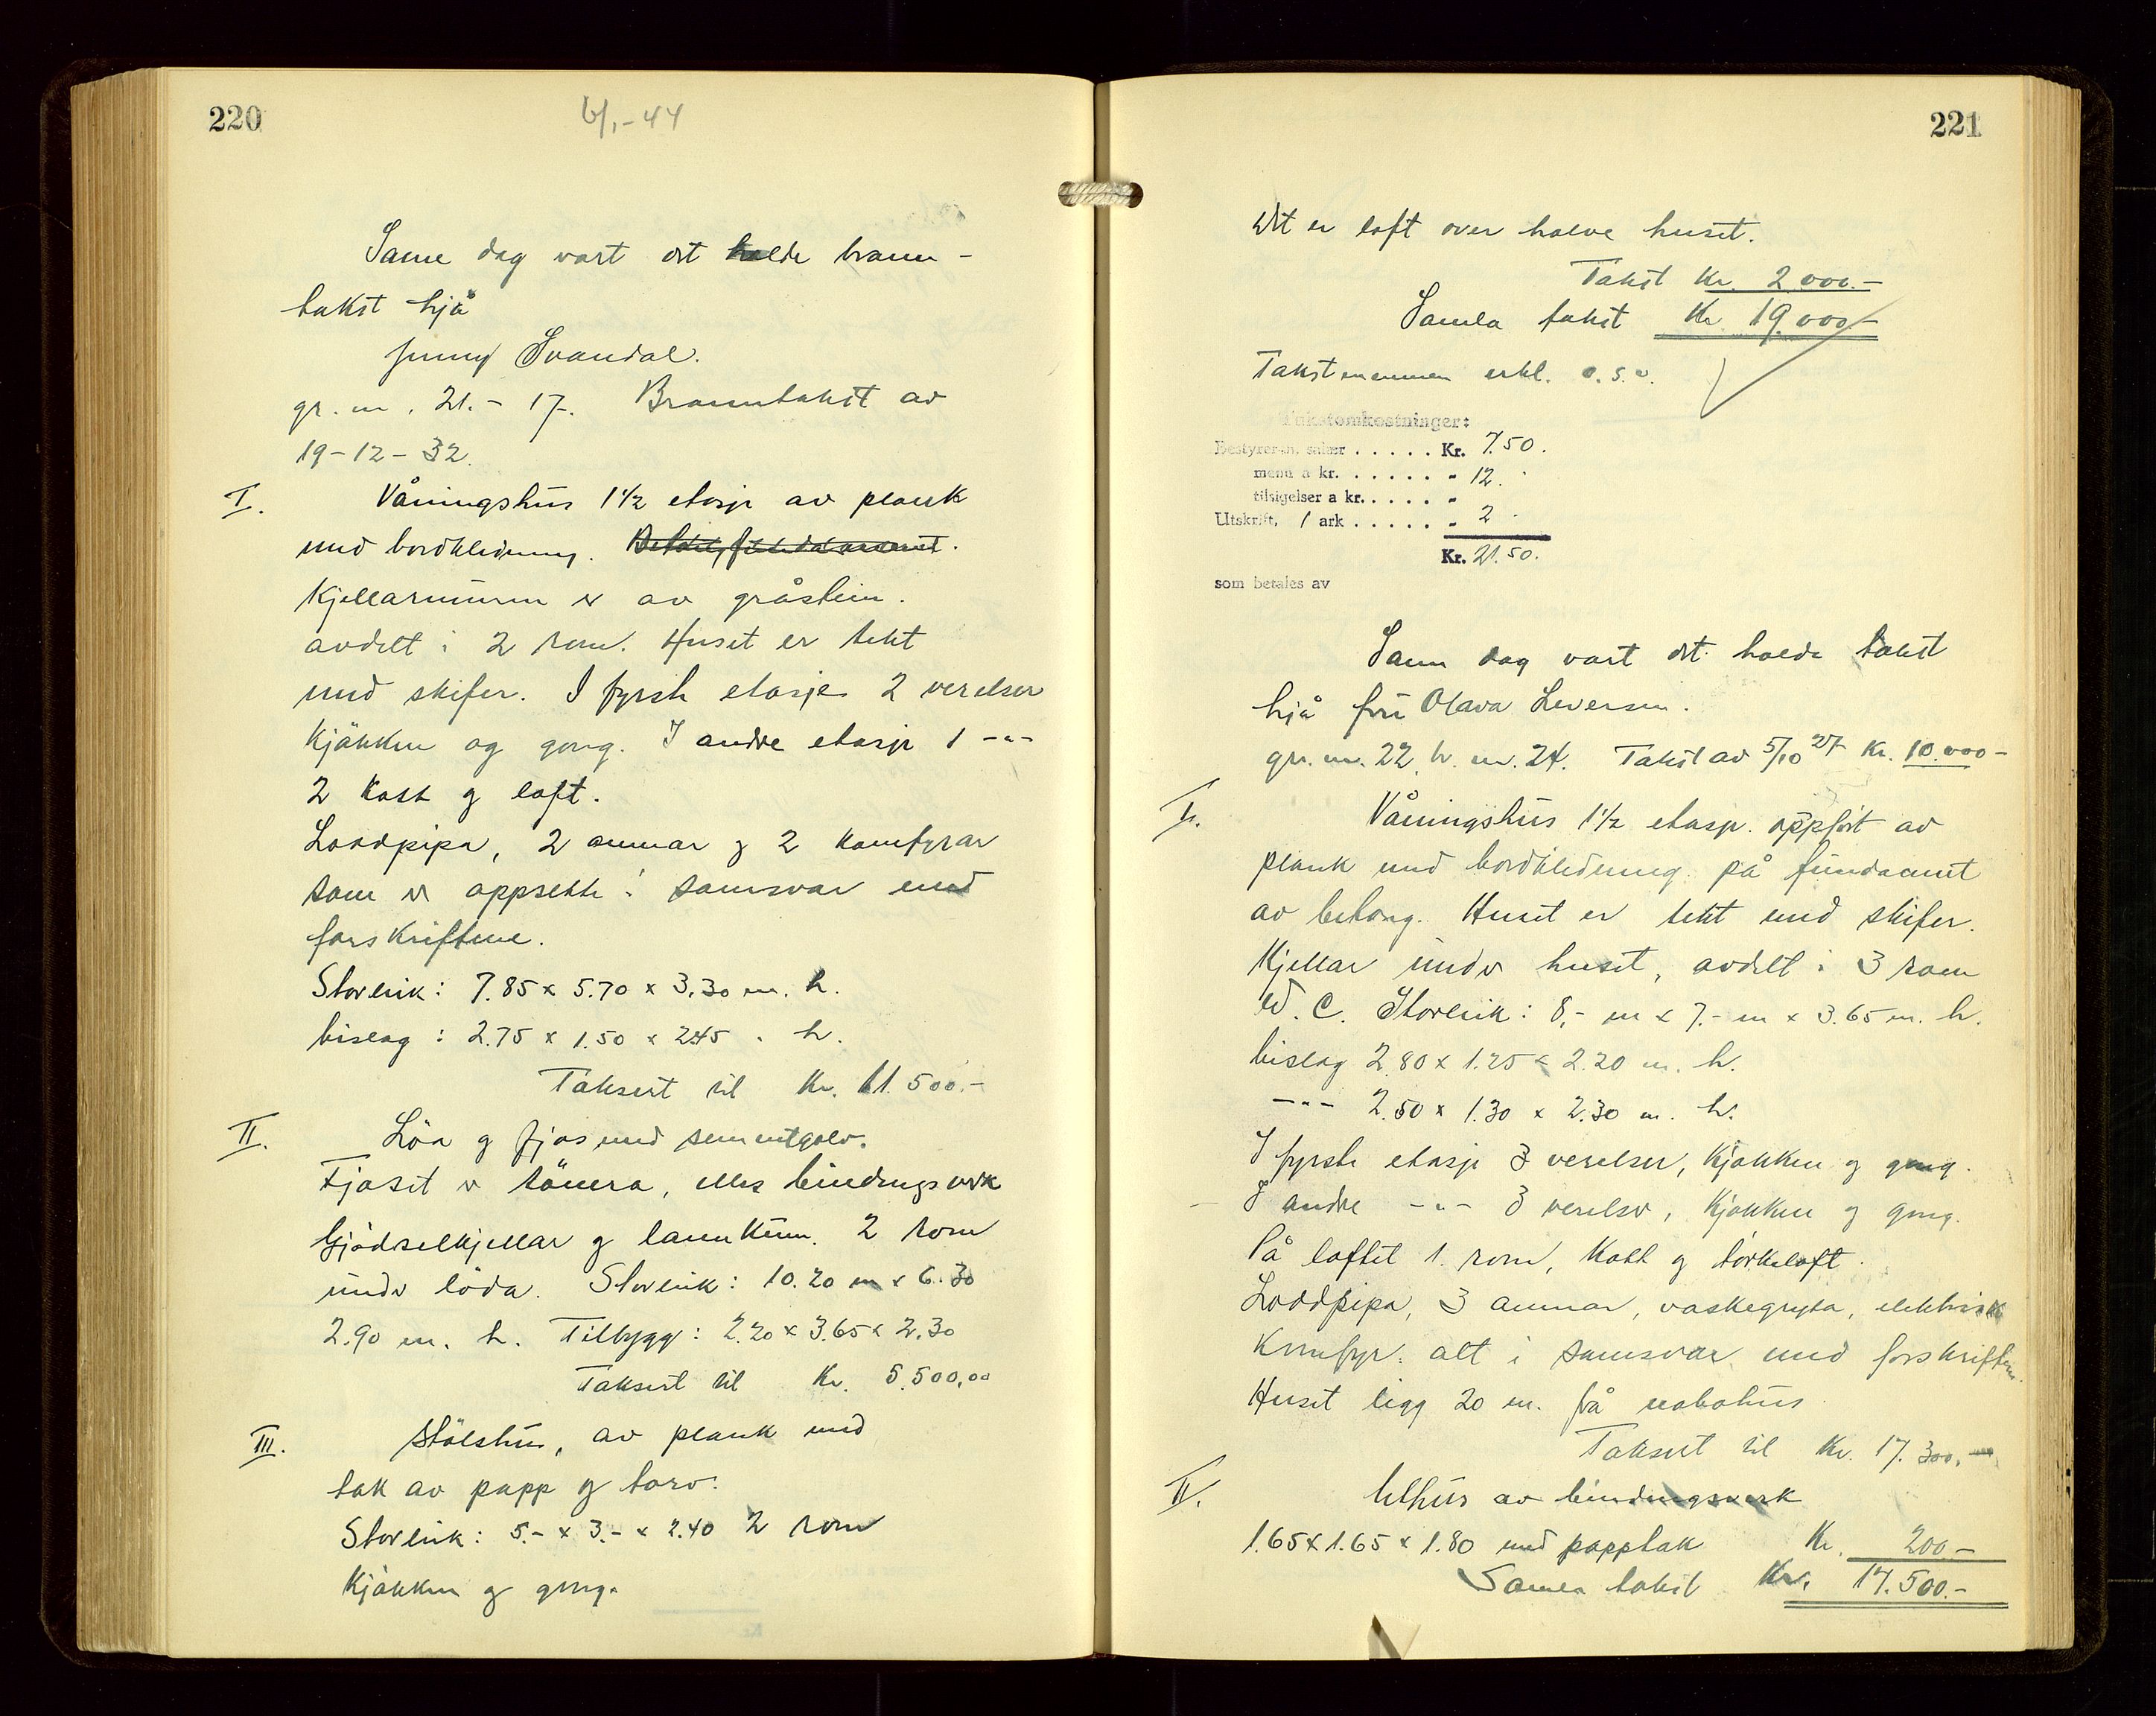 220
6/1-44
Same dag vart det halde brann-
takst hjå
Jenny Svandal.
gr. nr. 21.- 17. Branntakst av
19-12-32.
I. Våningshus 1 1/2 etasje av plank
med bordkledning. Betong fundament.
Kjellarmuren er av gråstein.
avdelt i 2 rom. Huset er tekt
med skifer. I fyrste etasje 2 verelser
Kjökken og gong. I andre etasje 1 -"-
2 Kott og loft.
Loddpipa, 2 omnar og 2 Komfyrar
som er oppsette i samsvar med
forskriftene.
Storleik: 7.85 x 5.70 x 3.30 m. h.
bislag: 2.75 x 1.50 x 2.45 " h.
Taksert til Kr. 11.500.-
II. Löa og fjos med sementgolv.
Fjoset er tömra, elles bindingsverk
Gjödselkjellar og landkum. 2 rom
under löda. Storleik: 10.20 m x 6.30
2.90 m. h. Tilbygg: 2.20 x 3.65 x 2.30
Taksert til Kr. 5.500,00
III. Stölshus, av plank med
tak av papp og torv.
Storleik: 5.- x 3.- x 2.40 2 rom
Kjökken og gong.
221
Det er loft over halve huset.
Takst Kr. 2000.-
Samla takst Kr 19.000-
Takstmennen erkl. o.s.v.
Takstomkostninger:
Bestyreren, salær ..... Kr. 7.50.
menn a kr. ...... " 12.
tilsigelser a kr. .... "
Utskrift, 1 ark ..... " 2
Kr. 21.50.
som betales av
Same dag vart det halde takst
hjå fru Olava Leversen.
gr. nr. 22 br. nr. 24. Takst av 5/10 27 Kr. 10.000-
I. Våningshus 1 1/2 etasje. oppfört av
plank med bordkledning på fundament
av betong. Huset er tekt med skifer.
Kjellar under huset, avdelt i 3 rom
W. C. Storleik: 8,- m x 7.- m x 3.65 m. h.
bislag 2.80 x 1.25 x 2.20 m. h.
-"- 2.50 x 1.30 x 2.30 m. h.
I fyrste etasje 3 verelser, Kjökken og gong.
I andre -"- 3 verelser, Kjökken og gong.
På loftet 1. rom, Kott og törkeloft.
Loddpipa, 3 omnar, vaskegryta, elektrisk
Komfyr: alt i samsvar med forskriften.
Huset ligg 20 m. frå nabohus
Taksert til Kr. 17.300,-
II. Uthus av bindingsverk
1.65 x 1.65 x 1.80 med papptak Kr. 200.-
Samla takst Kr. 17.500.-